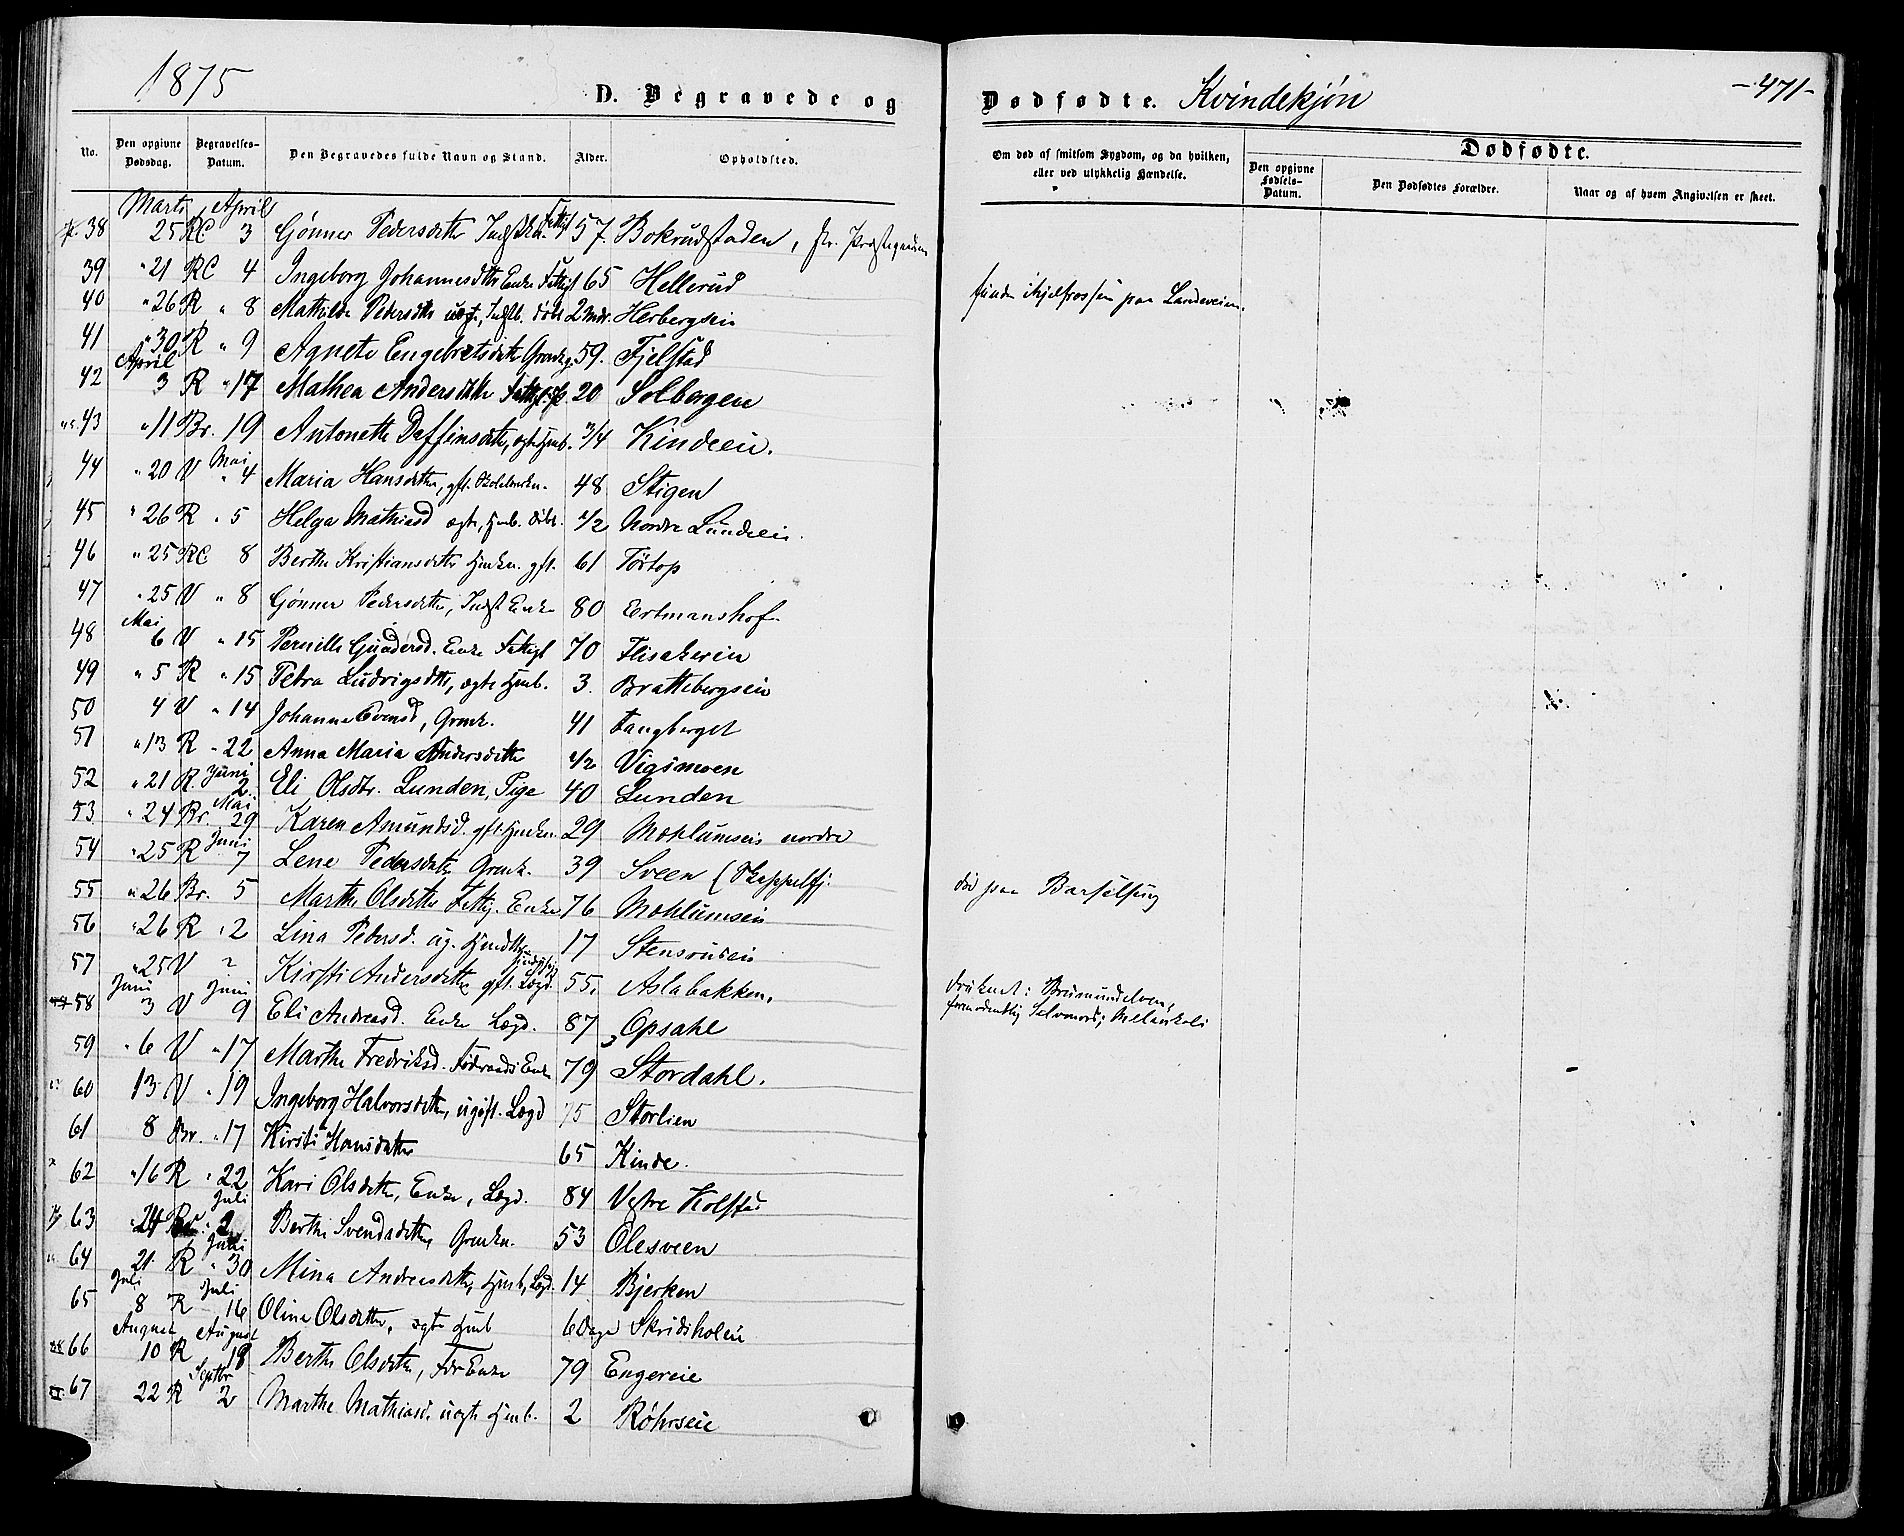 1875
D. Begravede og
Dødfødte. Kvindekjøn
-471-
No. Den opgivne Dødsdag. Begravelses-Datum. Den Begravedes fulde Navn og Stand. Alder. Opholdsted.
Om død af smitsom Sygdom, og da hvilken, eller ved ulykkelig Hændelse. Dødfødte. Den opgivne Fødsels-Datum. Den Dødfødtes Forældre. Naar og af hvem Angivelsen er skeet.
Marts April
38 25 RC 3 Gønner Pedersdatter 57. Bokrudstaden,
39 " 21 RC 4 Ingeborg Johannesdtr Enke Fattigl 65 Hellerud
funden ihjelfrossen paa Landeveien.
40 " 26 R " 8 Mathilde Pedersdtr 2 Mdr. Herbergseie
41 " 30 R " 9 Agnete Engebretsdtr 59. Fjelstad
April
42 3 R " 17 Mathea Andersdtr 20 Solbergen
43 " 11 Br. 19 Antonette Deffinsdtr, ægte 3/4 Kindeeie.
Mai
44 " 20 V " 4 Maria Hansdtr, gft. 48 Stigen
45 " 26 R " 5 Helga Mathiasd ægte, 1/2 Nordre Lundeeie.
46 " 25 RC 8 Berthe Kristiansdtr gft. 61 Tørtop
47 " 25 V " 8 Gønner Pedersdtr, Indst Enke 80 Ertmanshof
Mai
48 6 V " 15 Pernille Gundersd. Enke Fattigl 70 Flisakerie
49 " 5 R " 15 Petra Ludvigsdtr, ægte 3. Brattebergseie
50 4 V " 14 Johanne Evensd, 41 Fangberget
51 " 13 R " 22 Anna Maria Andersdtr 1/2 Vigsmoen
Juni
52 " 21 R. 2. Eli Olsdtr. Lunden, Pige 40 Lunden
Mai
53 " 24 Br. 29 Karen Amundsd. gft. 29 Mohlumseie nordre
Juni
54 " 25 R 7 Lene Pedersdtr 39 Sveen (Skappelfj.
død paa Barselseng
55 " 26 Br. 5 Marthe Olsdtr Enke 76 Mohlumseie
56 " 26 R " 2 Lina Pedersd. 17 Stensrudeie
57 " 25 V Kirsti Andersdtr gft. Lægd 55. Aslabakken.
druknet i Brumundelven, formodentlig Selvmord; Melankoli
Juni Juni
58 3 V 9 Eli Andreasd. Enke Lægd. 87 Opsahl
59 " 6 V " 17 Marthe Fredriksd. Føderaads Enke 79 Stordahl.
60 13 V " 19 Ingeborg Halvorsdtr, ugift. Lægd 75 Storlien
61 8 Br. " 17 Kirsti Hansdatter 65 Kinde.
62 " 16 R " 22 Kari Olsdtr, Enke, Lægd. 84 Vestre Kolstad
Juli
63 24 2 Berthe Svendsdtr, 53 Olesveen
64 21 R " 30 Mina Andreasdtr, 14 Bjerken
Juli Juli
65 8 R 16 Oline Olsdtr, ægte 6 Dage Skridsholeie
August August
66 10 R 18 Berthe Olsdtr, Enke 79 Engereie
Septbr
67 22 R 2 Marthe Mathiasd. uægte 2 Røhrseie